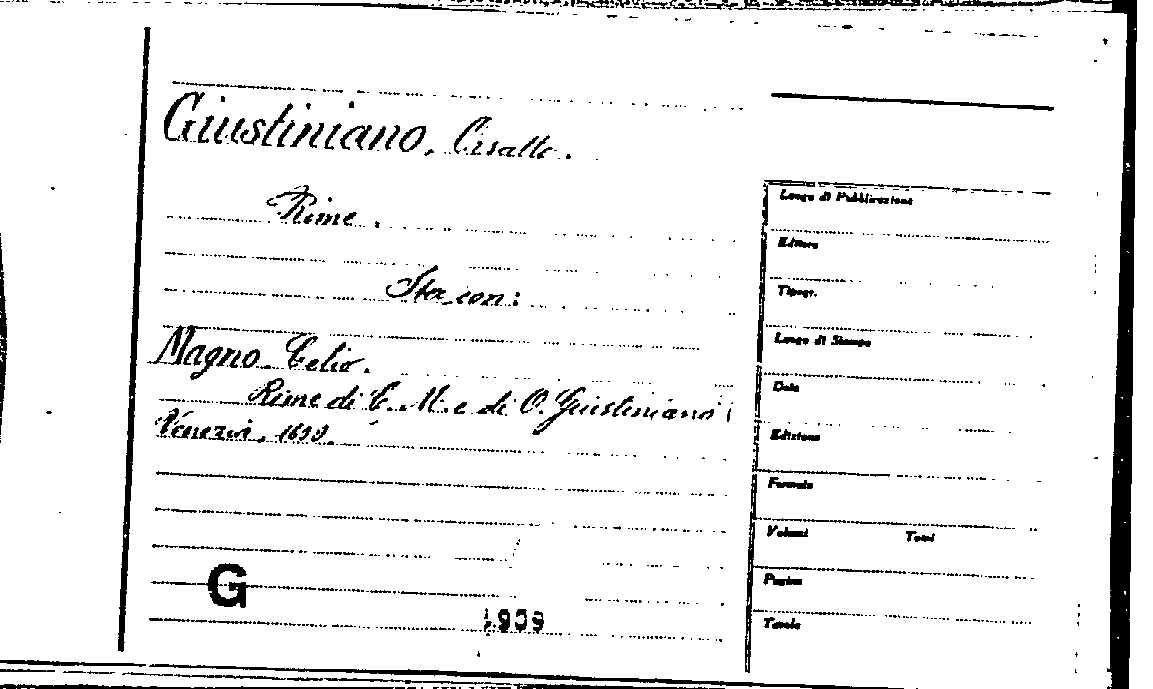 Giustiniano, Orsatto.
Rime.
Sta con:
Magno Celio.
Rime di C. M. e di O. Giustiniano
Venezia,
G
Luogo di Pubblicazione
Editore
Tipogr.
Luogo di Stampa
Data
Edizione
Formato
Volumi Tomi
Pagine
Tavole